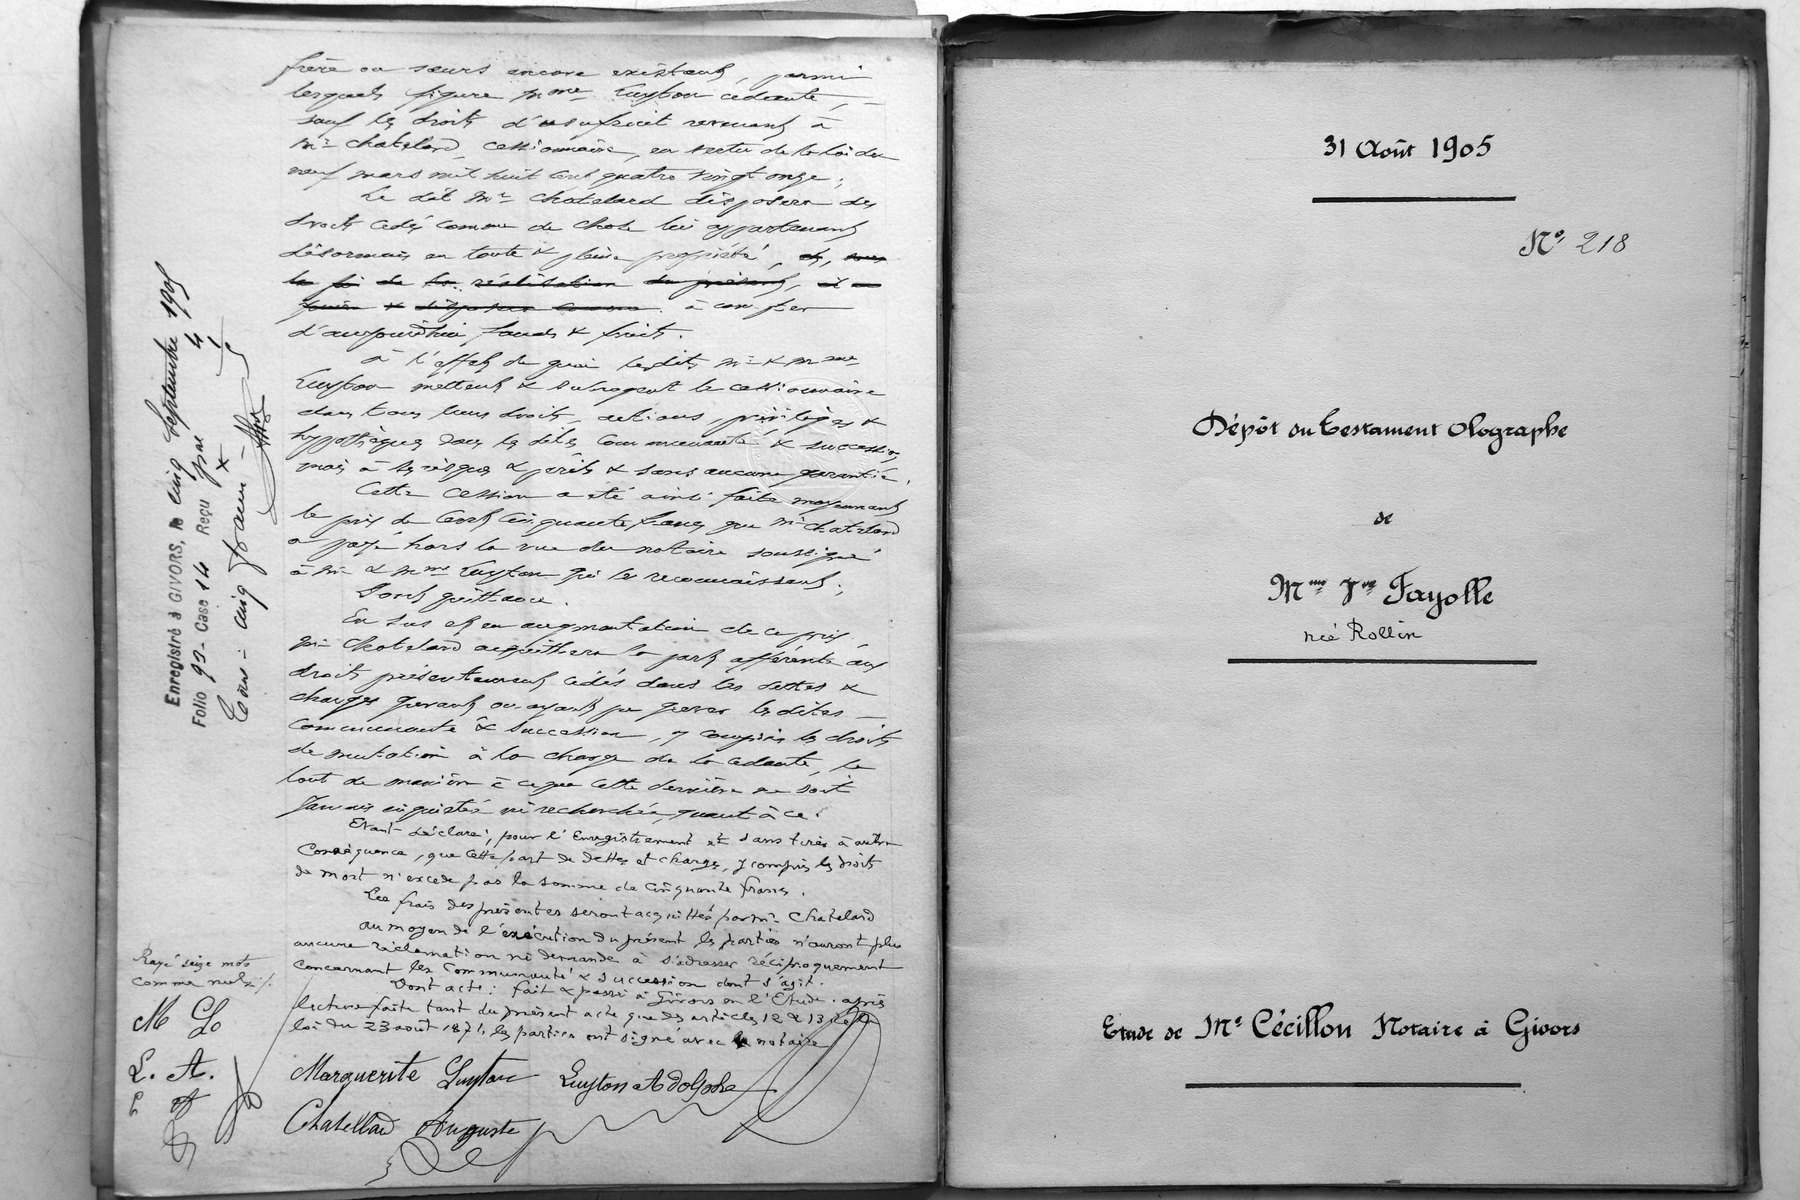 frère ou sœurs encore existants, parmi
lesquels figure Mme Luyton cédante, –
sauf les droits d'usufruit revenant à
Mr Chatelard, cessionnaire, en vertu de la loi du
neuf mars mil huit cent quatre vingt onze ;
Le dit Mr Chatelard disposera des
droits cédés comme de chose lui appartenant
désormais en toute & pleine propriété, et, sous
la foi de la réalisation du présent, il en
jouira & disposera comme à compter
d'aujourd'hui, fonds & fruits.
À l'effet de quoi lesdits Mr & Mme
Luyton mettent & subrogent le cessionnaire
dans tous leurs droits, actions, privilèges &
hypothèques dans les dites communauté & succession,
mais à ses risques & périls & sans aucune garantie.
Cette cession a été ainsi faite moyennant
le prix de cent cinquante francs que Mr Chatelard
a payé hors la vue du notaire soussigné
à Mr & Mme Luyton qui le reconnaissent ;
Dont quittance.
En sus et en augmentation de ce prix,
Mr Chatelard acquittera la part afférente aux
droits présentement cédés dans les dettes &
charges grevant ou ayant pu grever les dites –
communauté & succession, y compris les droits
de mutation à la charge de la cédante, le
tout de manière à ce que cette dernière ne soit
jamais inquiétée ni recherchée quant à ce.
Etant déclaré, pour l'Enregistrement et sans tirer à autre
Conséquence, que cette part de dettes et charges, y compris les droits
de mort n'excède pas la somme de cinquante francs.
Les frais des présentes seront acquittés par Mr Chatelard
au moyen de l'exécution du présent les parties n'auront plus
aucune réclamation ni demande à s'adresser réciproquement
concernant les communauté & succession dont s'agit.
Dont acte : fait & passé à Givors en l'Etude. après
lecture faite tant du présent acte que des articles 12 & 13 de la
loi du 23 août 1871, les parties ont signé avec le notaire
Marguerite Luyton Luyton Adolphe
Chatellard Auguste
Rayé seize mots
comme nuls
M L
L. A.
Enregistré à GIVORS, le cinq Septembre 1905
Folio 93 - Case 14 Reçu
31 Août 1905
No. 218
Dépôt du Testament Olographe
de
Mme Vve Fayolle
née Rollin
Etude de Me Cécillon Notaire à Givors